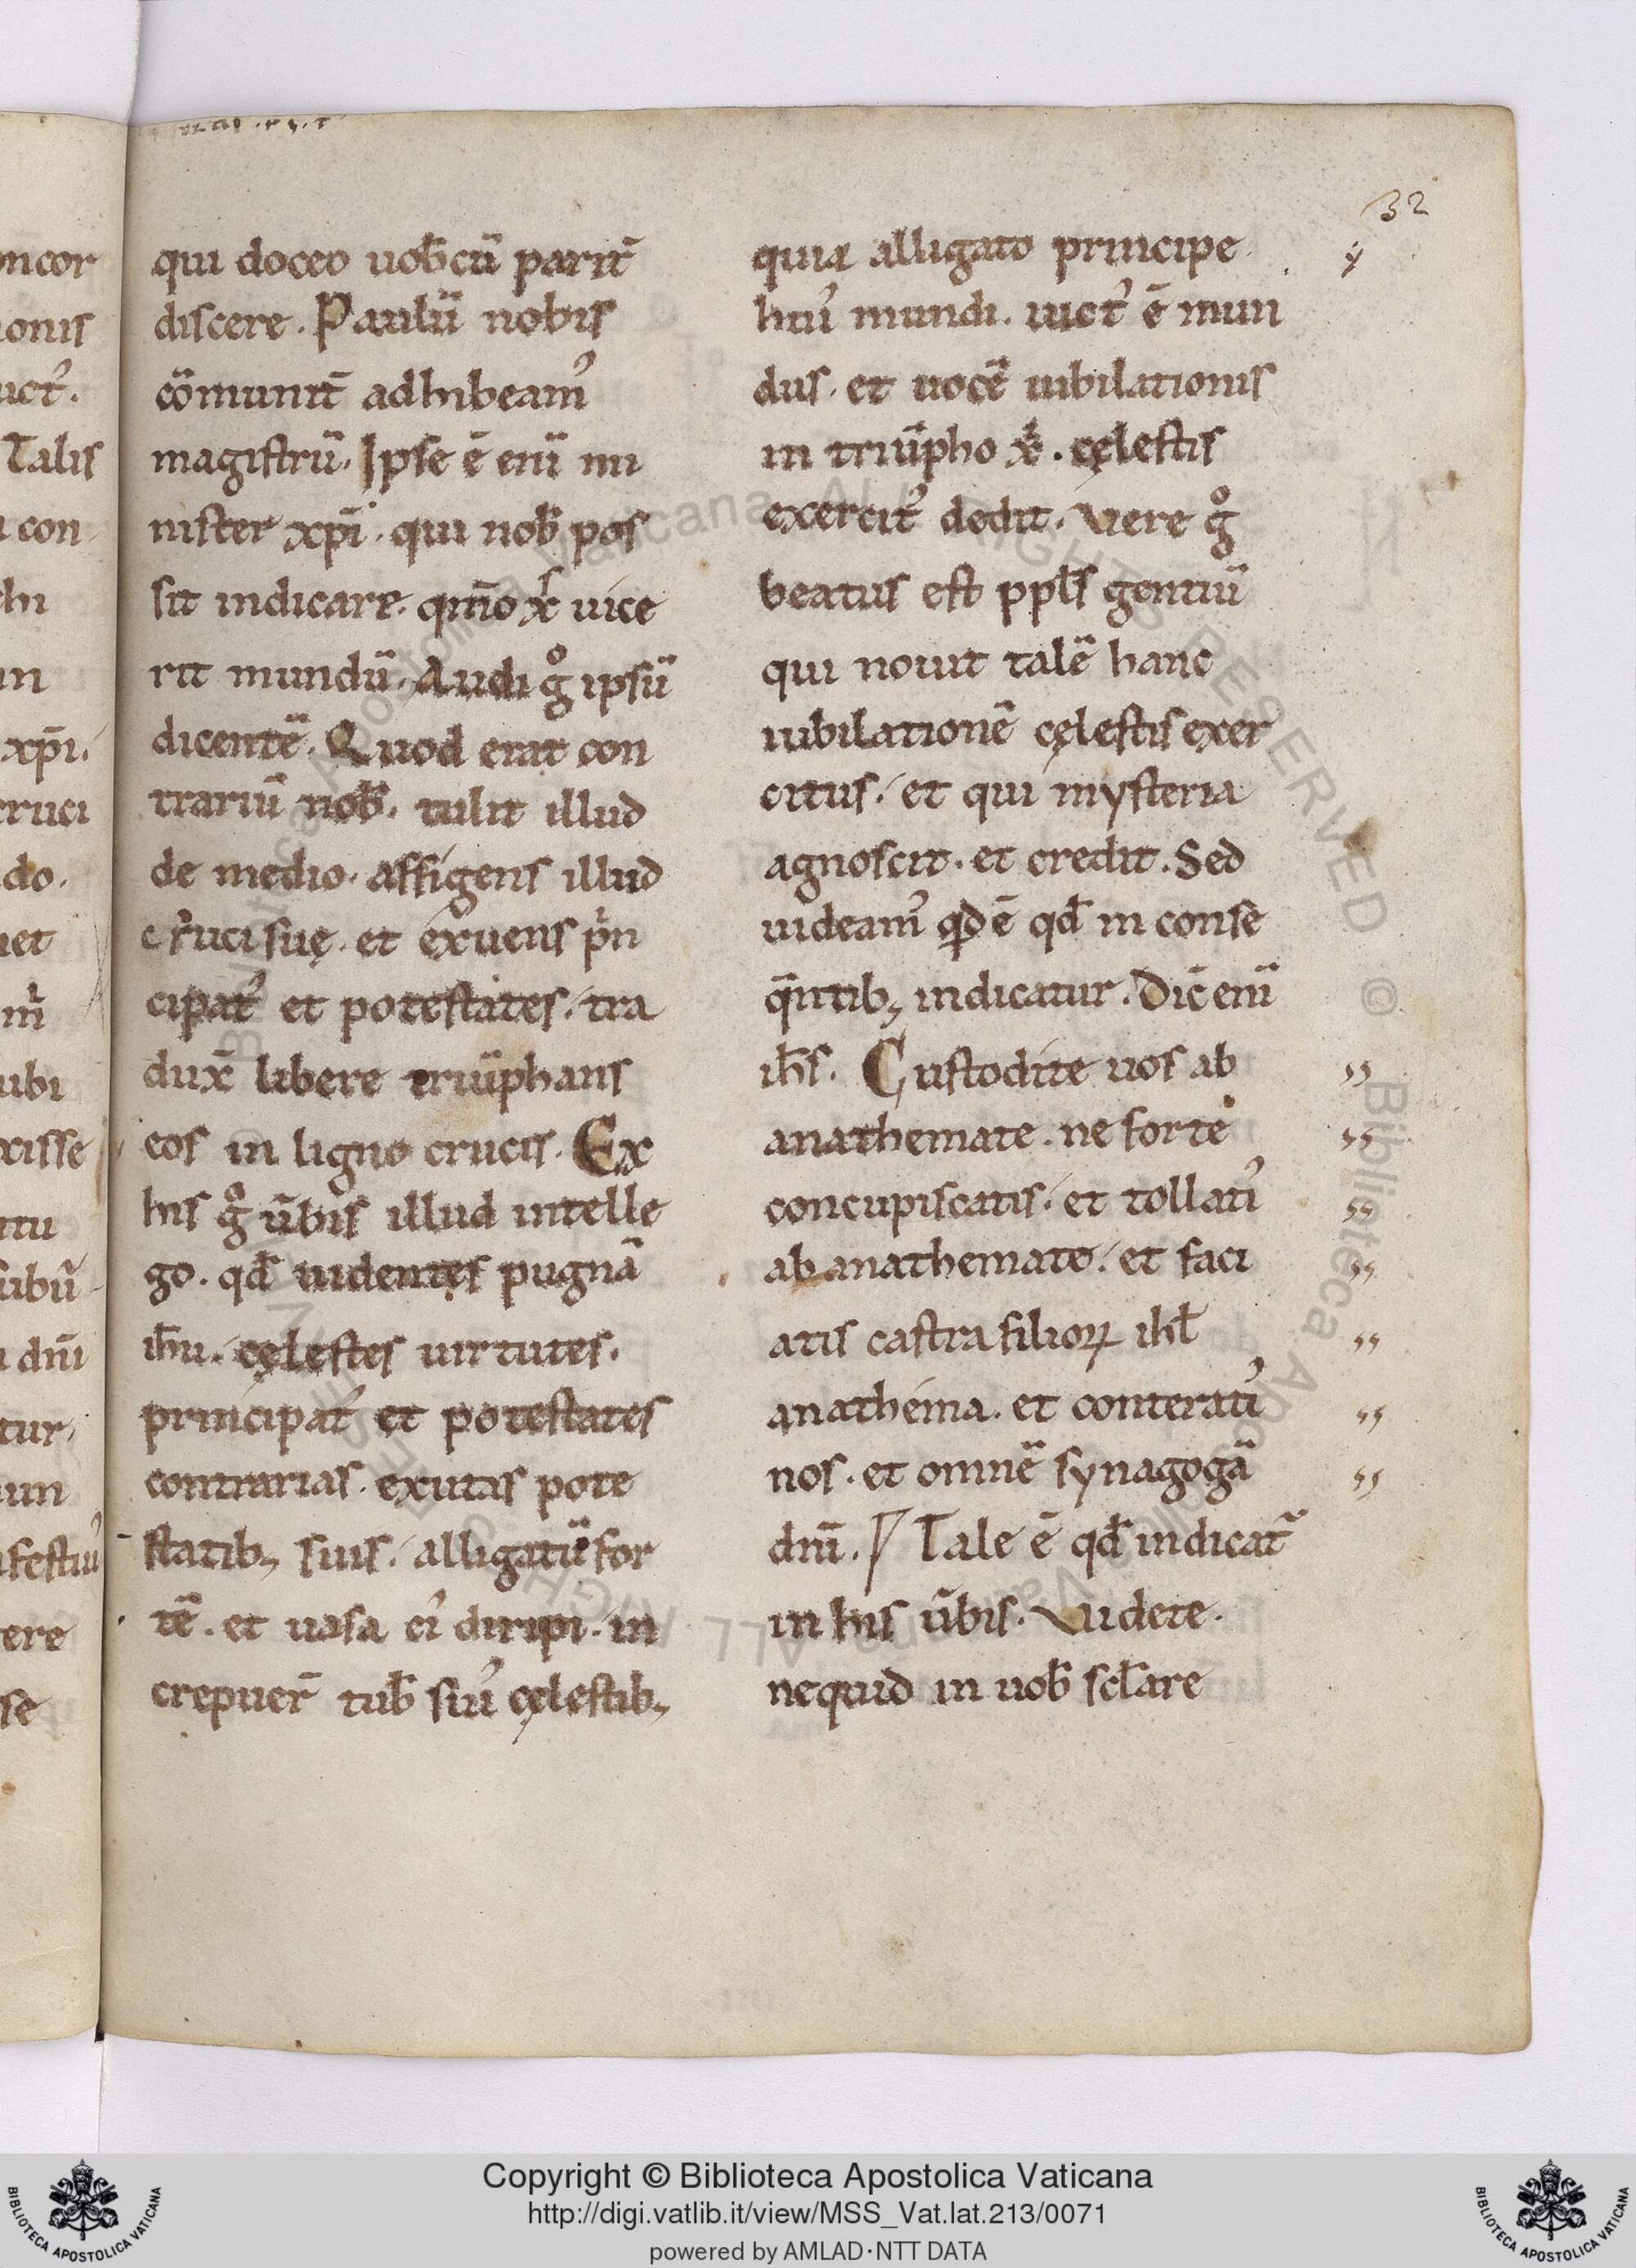 32
qui doceo uob̄ cū parit̄
discere. Paulū nobis
cōmunit̄ adhibeam᾽
magistrū. Ipse ē enī mi
nister xp̄i. qui nob̄ pos
sit indicare. qm̄o xꝰ uice
rit mundū. Audi gͦ ipsū
dicentē. Quod erat con
trariū nob̄. tulit illud
de medio. affigens illud
cruci suę. et exuens pͥn
cipat᾽ et potestates. tra
dux̄ libere triūphans
eos in ligno crucis. Ex
his gͦ ūbis illud intelle
go. qd̄ uidentes pugnā
ih̄u. cęlestes uirtutes.
principat᾽ et potestates
contrarias. exutas pote
statib; suis. alligatū for
tē. et uasa ei᾽ diripi. in
crepuer̄ tub̄ siu᾽ cęlestib;
quia alligato principe
hui᾽ mundi. uict᾽ ē mun
dus. et uocē iubilationis
in triūpho xͥ. cęlestis
exercit᾽ dedit. Vere gͦ
beatus est ppl̄s gentiū
qui nouit talē hanc
iubilationē cęlestis exer
citus. et qui mysteria
agnoscit. et credit. Sed
uideam᾽ qd ē qd̄ in conse
q̄ntib; indicatur. Dic̄ enī
ih̄s. Custodite uos ab
anathemate. ne forte
concupiscatis. et tollati᾽
ab anathemate. et faci
atis castra filioꝝ ihl̄
anathema. et conterati᾽
nos. et omnē synagogā
dn̄i. Tale ē qd̄ indicat᷑
in his ūbis. Videte.
nequid in uob̄ scl̄are
Copyright © Biblioteca Apostolica Vaticana
http://digi.vatlib.it/view/MSS_Vat.lat.213/0071
powered by AMLAD·NTT DATA
BIBLIOTECA APOSTOLICA VATICANA
BIBLIOTECA APOSTOLICA VATICANA